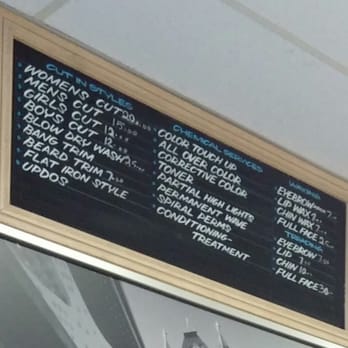 CUT IN STYLES
WOMENS CUT 20.00
MENS CUT 15.00
GIRLS CUT 12.00
BOYS CUT 12.00
BLOW DRY WASH 25...
BANG TRIM
BEARD TRIM 7.00
FLAT IRON STYLE
UPDOS
CHEMICAL SERVICES
COLOR TOUCH UP
ALL OVER COLOR
CORRECTIVE COLOR
TONER
PARTIAL HIGH LIGHTS
PERMANENT WAVE
SPIRAL PERMS
CONDITIONING-
TREATMENT
WAXING
EYEBROW 7
LIP WAX 7
CHIN WAX 7
FULL FACE 25
EYEBROW 7.00
LIP 7
CHIN 10
FULL FACE 30